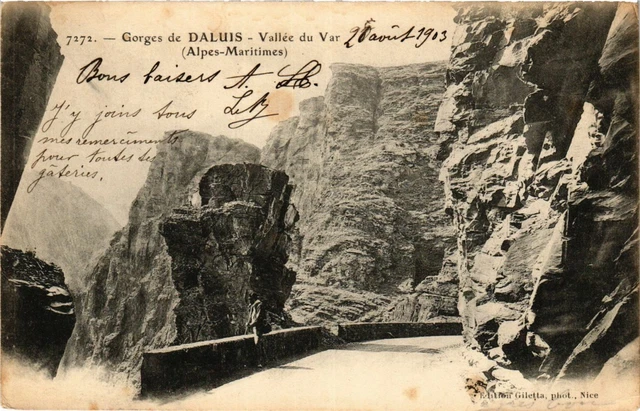 7272. — Gorges de DALUIS - Vallée du Var
(Alpes-Maritimes)
20 août 1903
Bons baisers
J'y joins tous
mes remerciments
pour toutes ses
gâteries.
Edition Giletta, phot., Nice